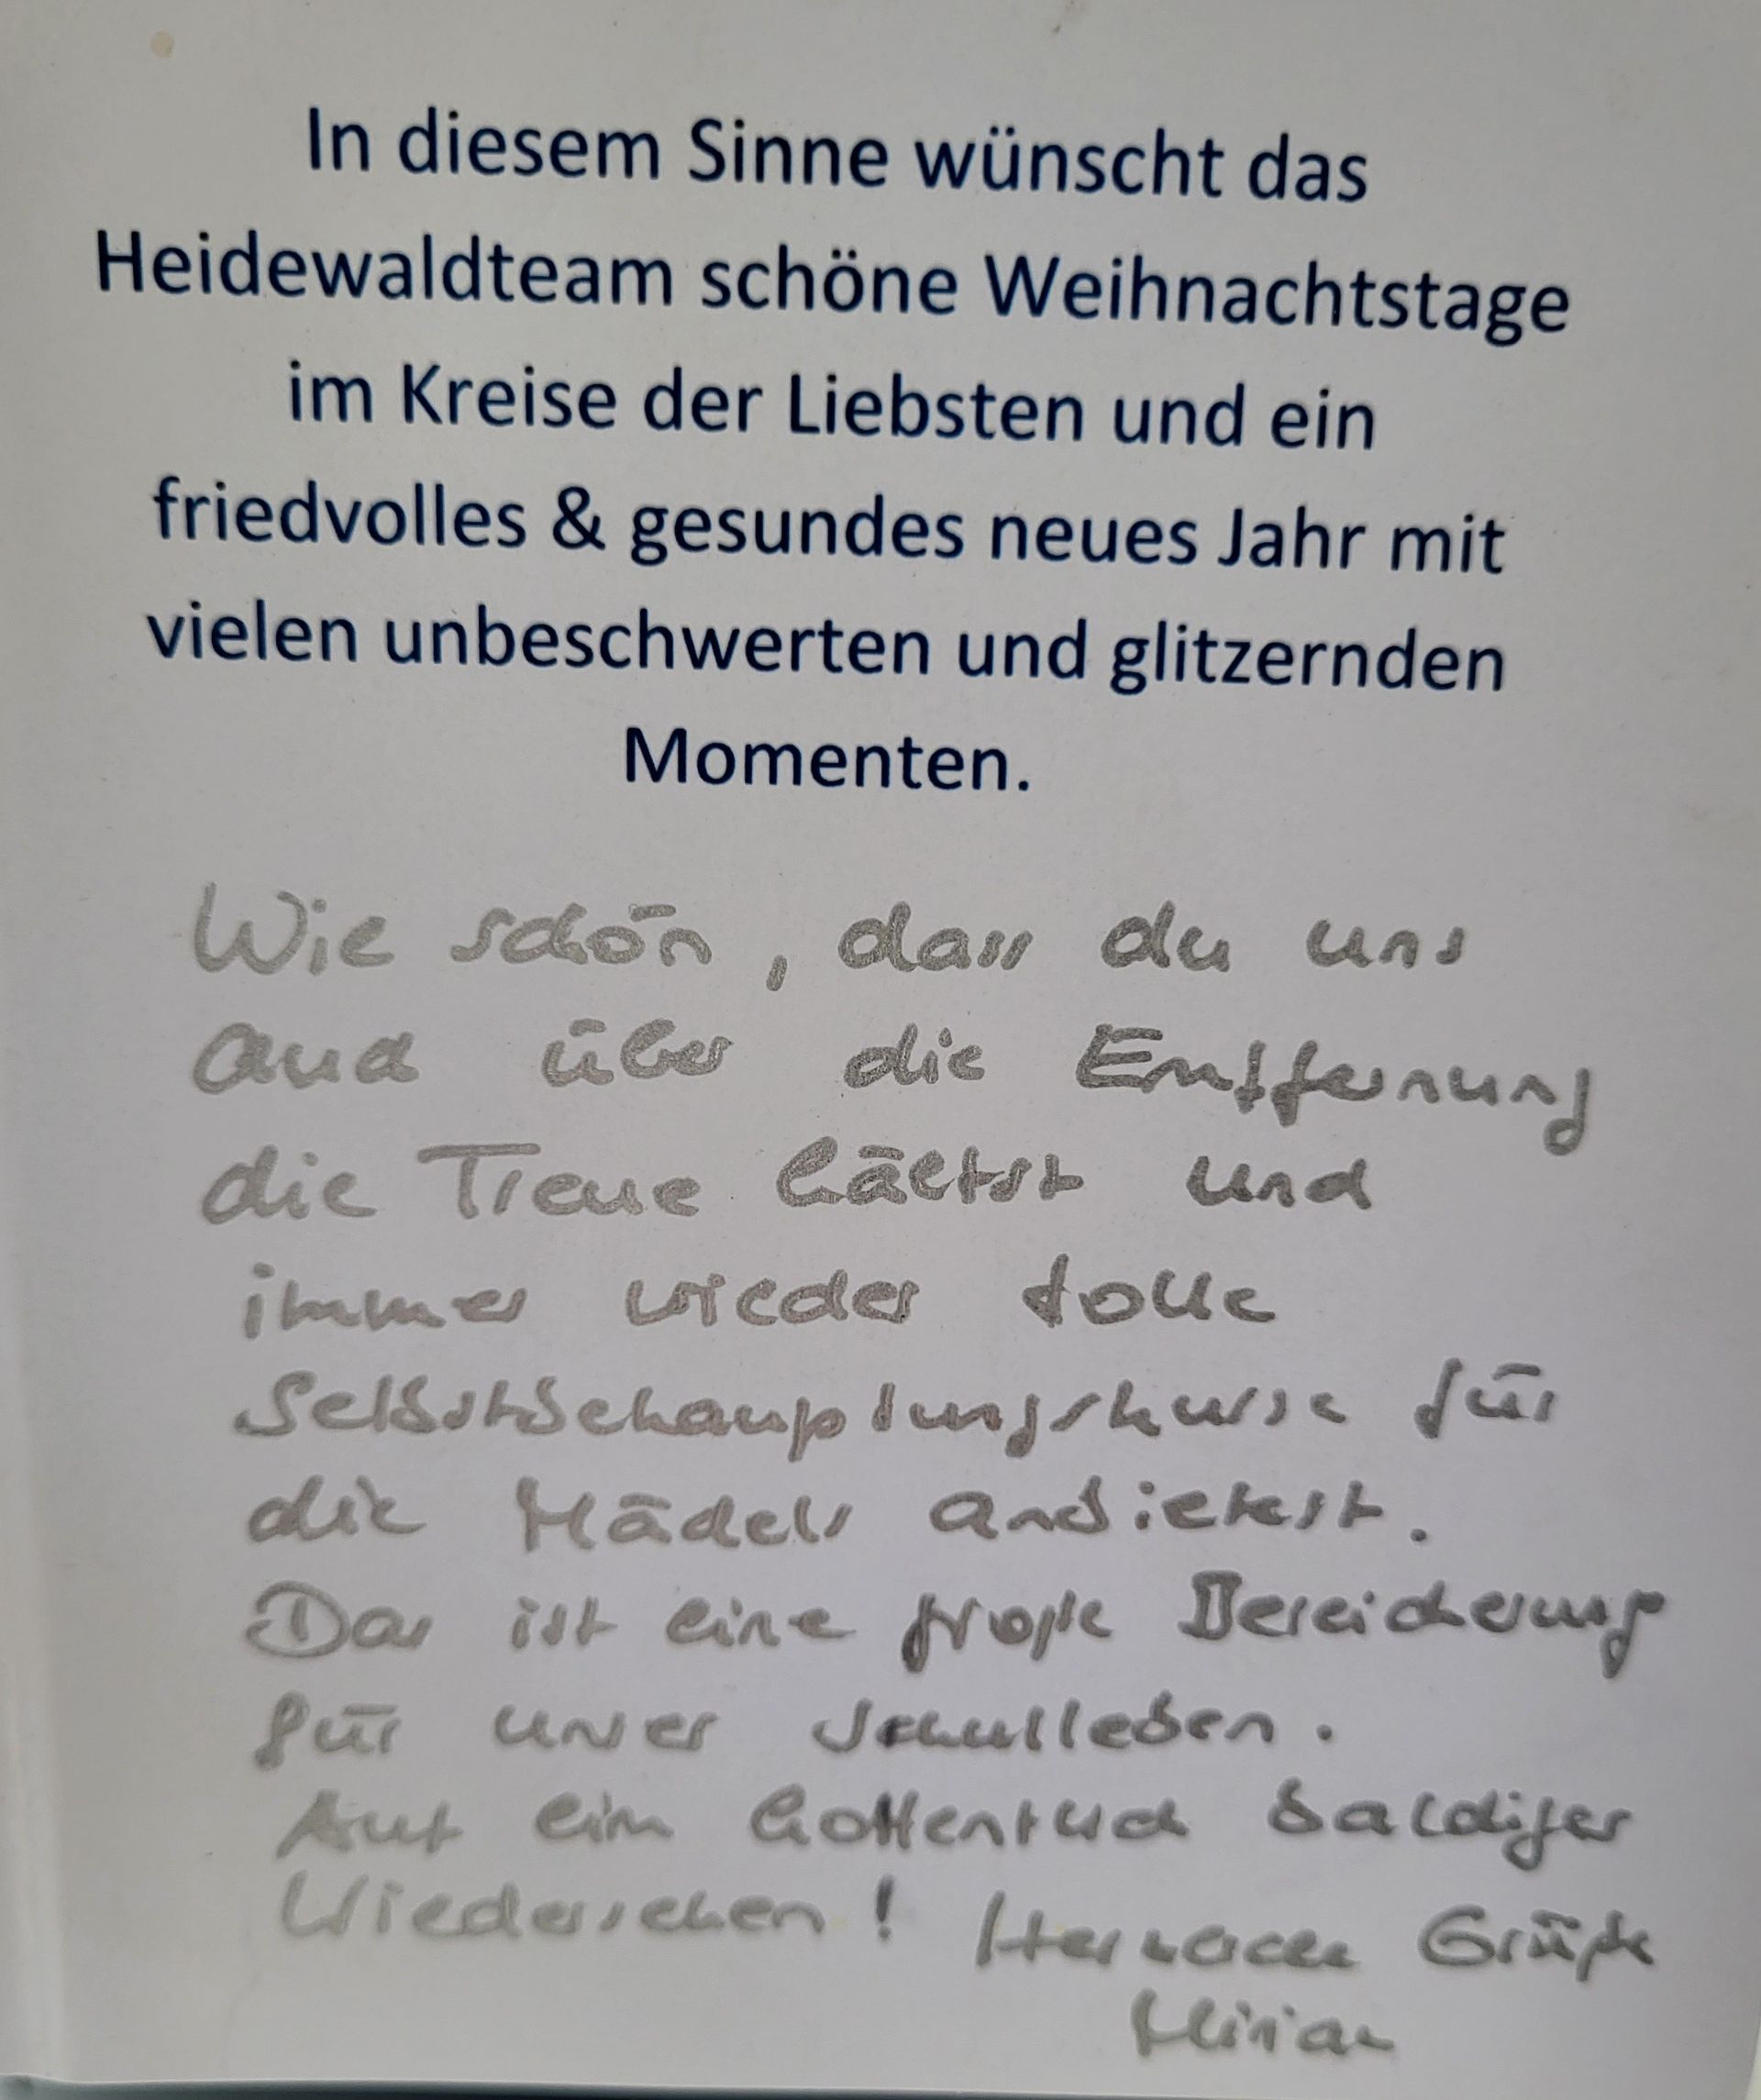 In diesem Sinne wünscht das
Heidewaldteam schöne Weihnachtstage
im Kreise der Liebsten und ein
friedvolles & gesundes neues Jahr mit
vielen unbeschwerten und glitzernden
Momenten.
Wie schön, dass du uns
auch über die Entfernung
die Treue hältst und
immer wieder tolle
Selbstbehauptungskurse für
die Mädels anbietest.
Das ist eine große Bereicherung
für unser Schulleben.
Auf ein hoffentlich baldiges
Wiedersehen! Herzliche Grüße
Miriam